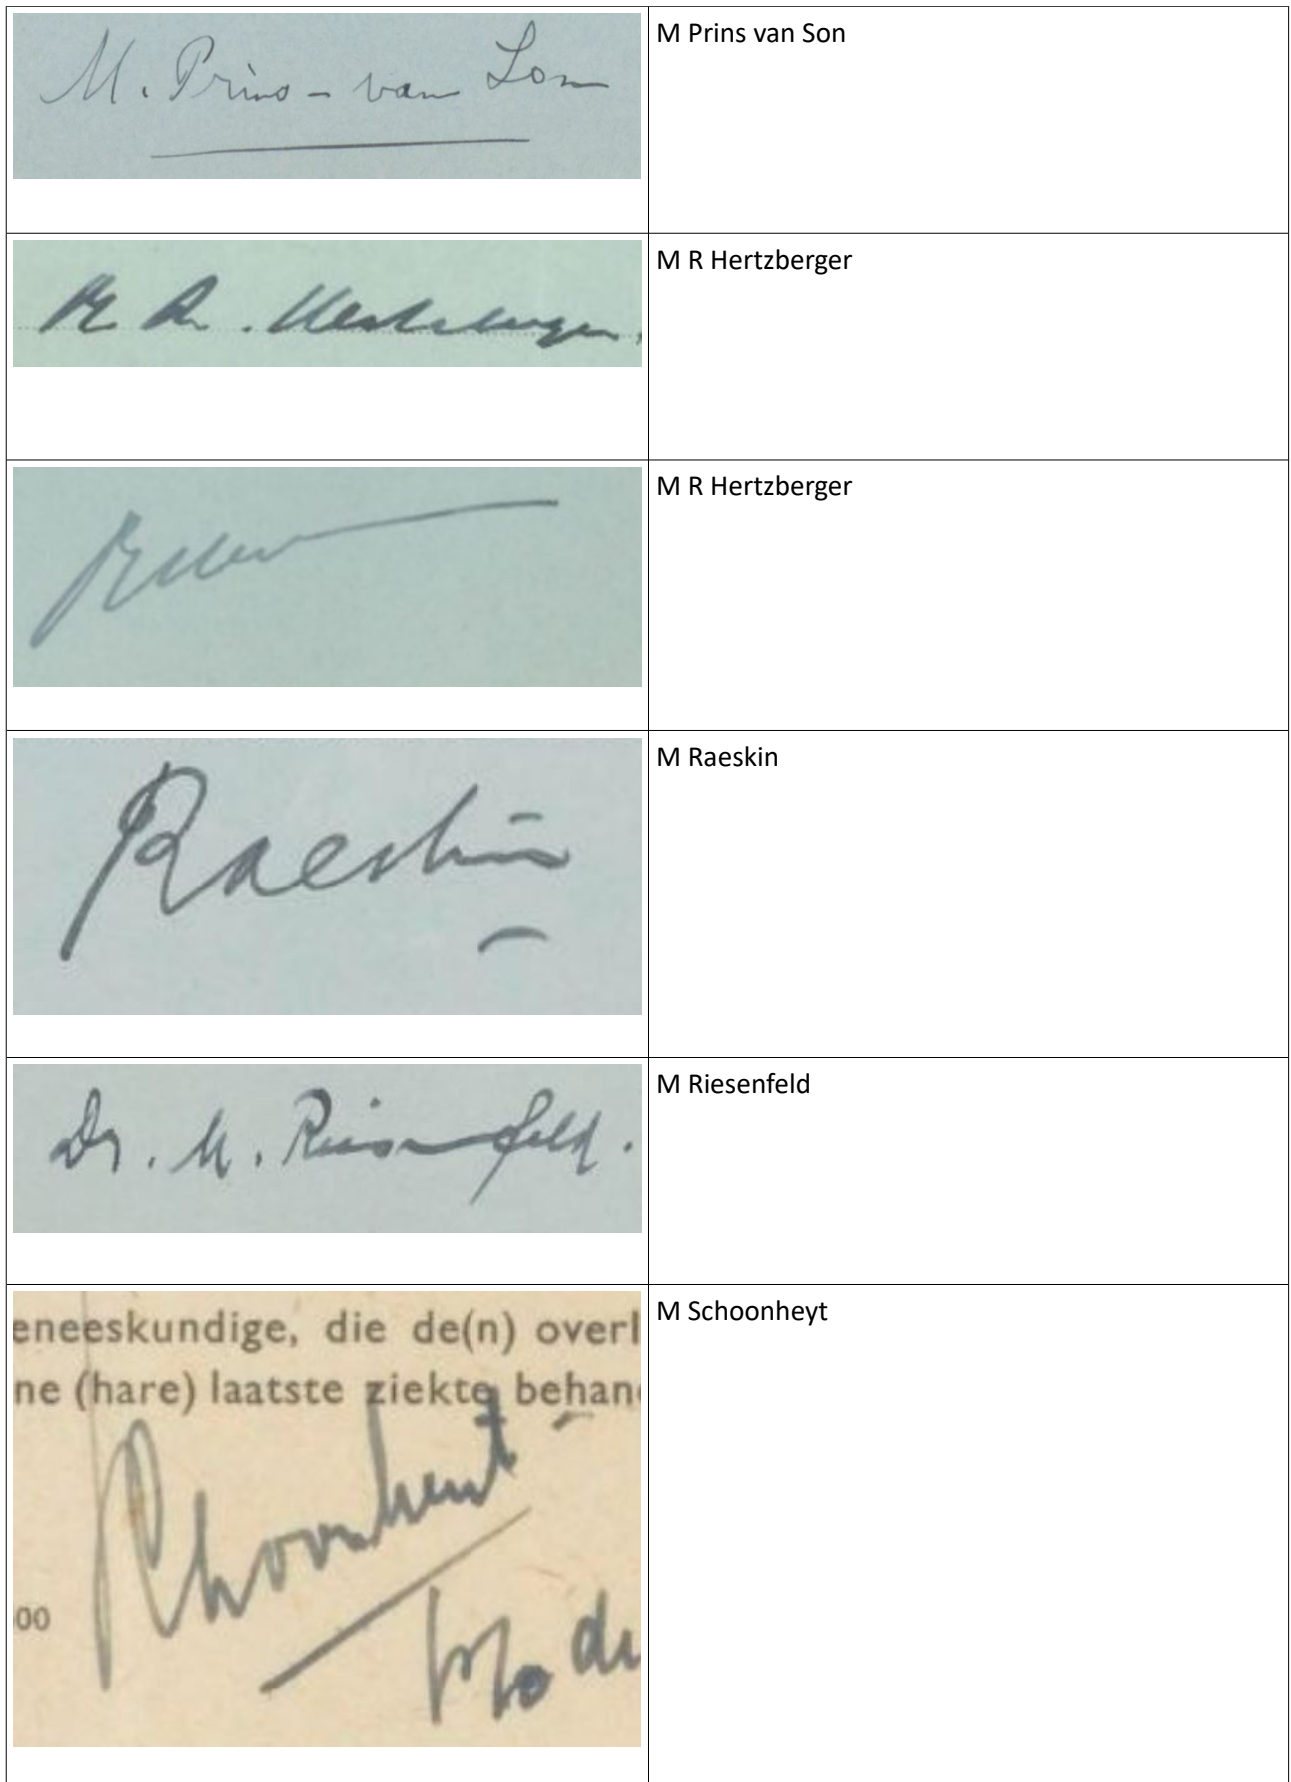 M. Prins - van Son
M Prins van Son
M R. Hertzberger.
M R Hertzberger
M R Hertzberger
Raeskin
M Raeskin
Dr. M. Riesenfeld.
M Riesenfeld
eneeskundige, die de(n) overl
ne (hare) laatste ziekte behan
Schoonheyt
00
M Schoonheyt